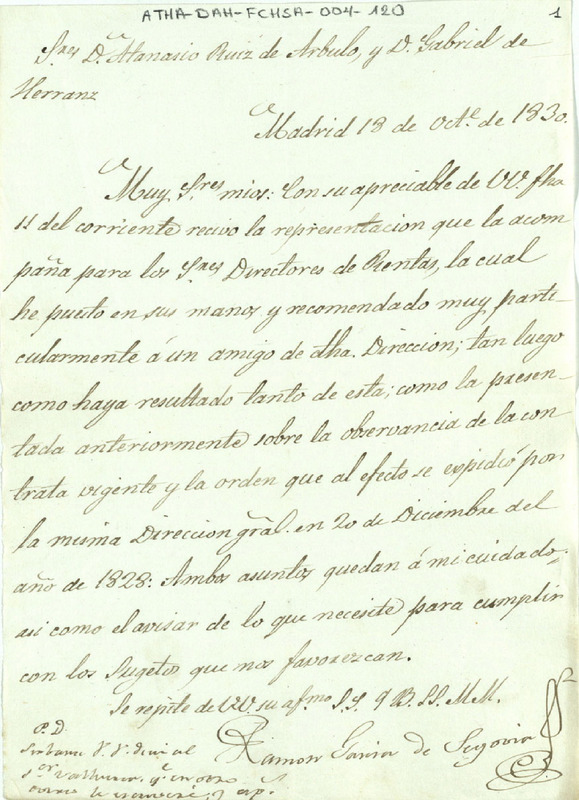 ATHA-DAH-FCHSA-004-120
1
Sres Dn. Atanasio Ruiz de Arbulo, y D. Gabriel de
Herranz
Madrid 18 de Octe. de 1830.
Muy Sres mios: Con su apreciable de VV. fha
11 del corriente recivo la representacion que la acom
paña para los Sres Directores de Rentas, la cual
he puesto en sus manos y recomendado muy parti-
cularmente á un amigo de dha. Direccion; tan luego
como haya resultado tanto de esta; como la presen-
tada anteriormente sobre la observancia de la con
trata vigente y la orden que al efecto se espidió por
la misma Direccion gral. en 20 de Diciembre del
año de 1828: Ambos asuntos quedan á mi cuidado;
asi como el avisar de lo que necesite para cumplir
con los Sugetos que nos favorezcan.
Se repite de VV su afmo S.S. q B. SS. MM.
Ramon Garcia de Segovia
P.D.